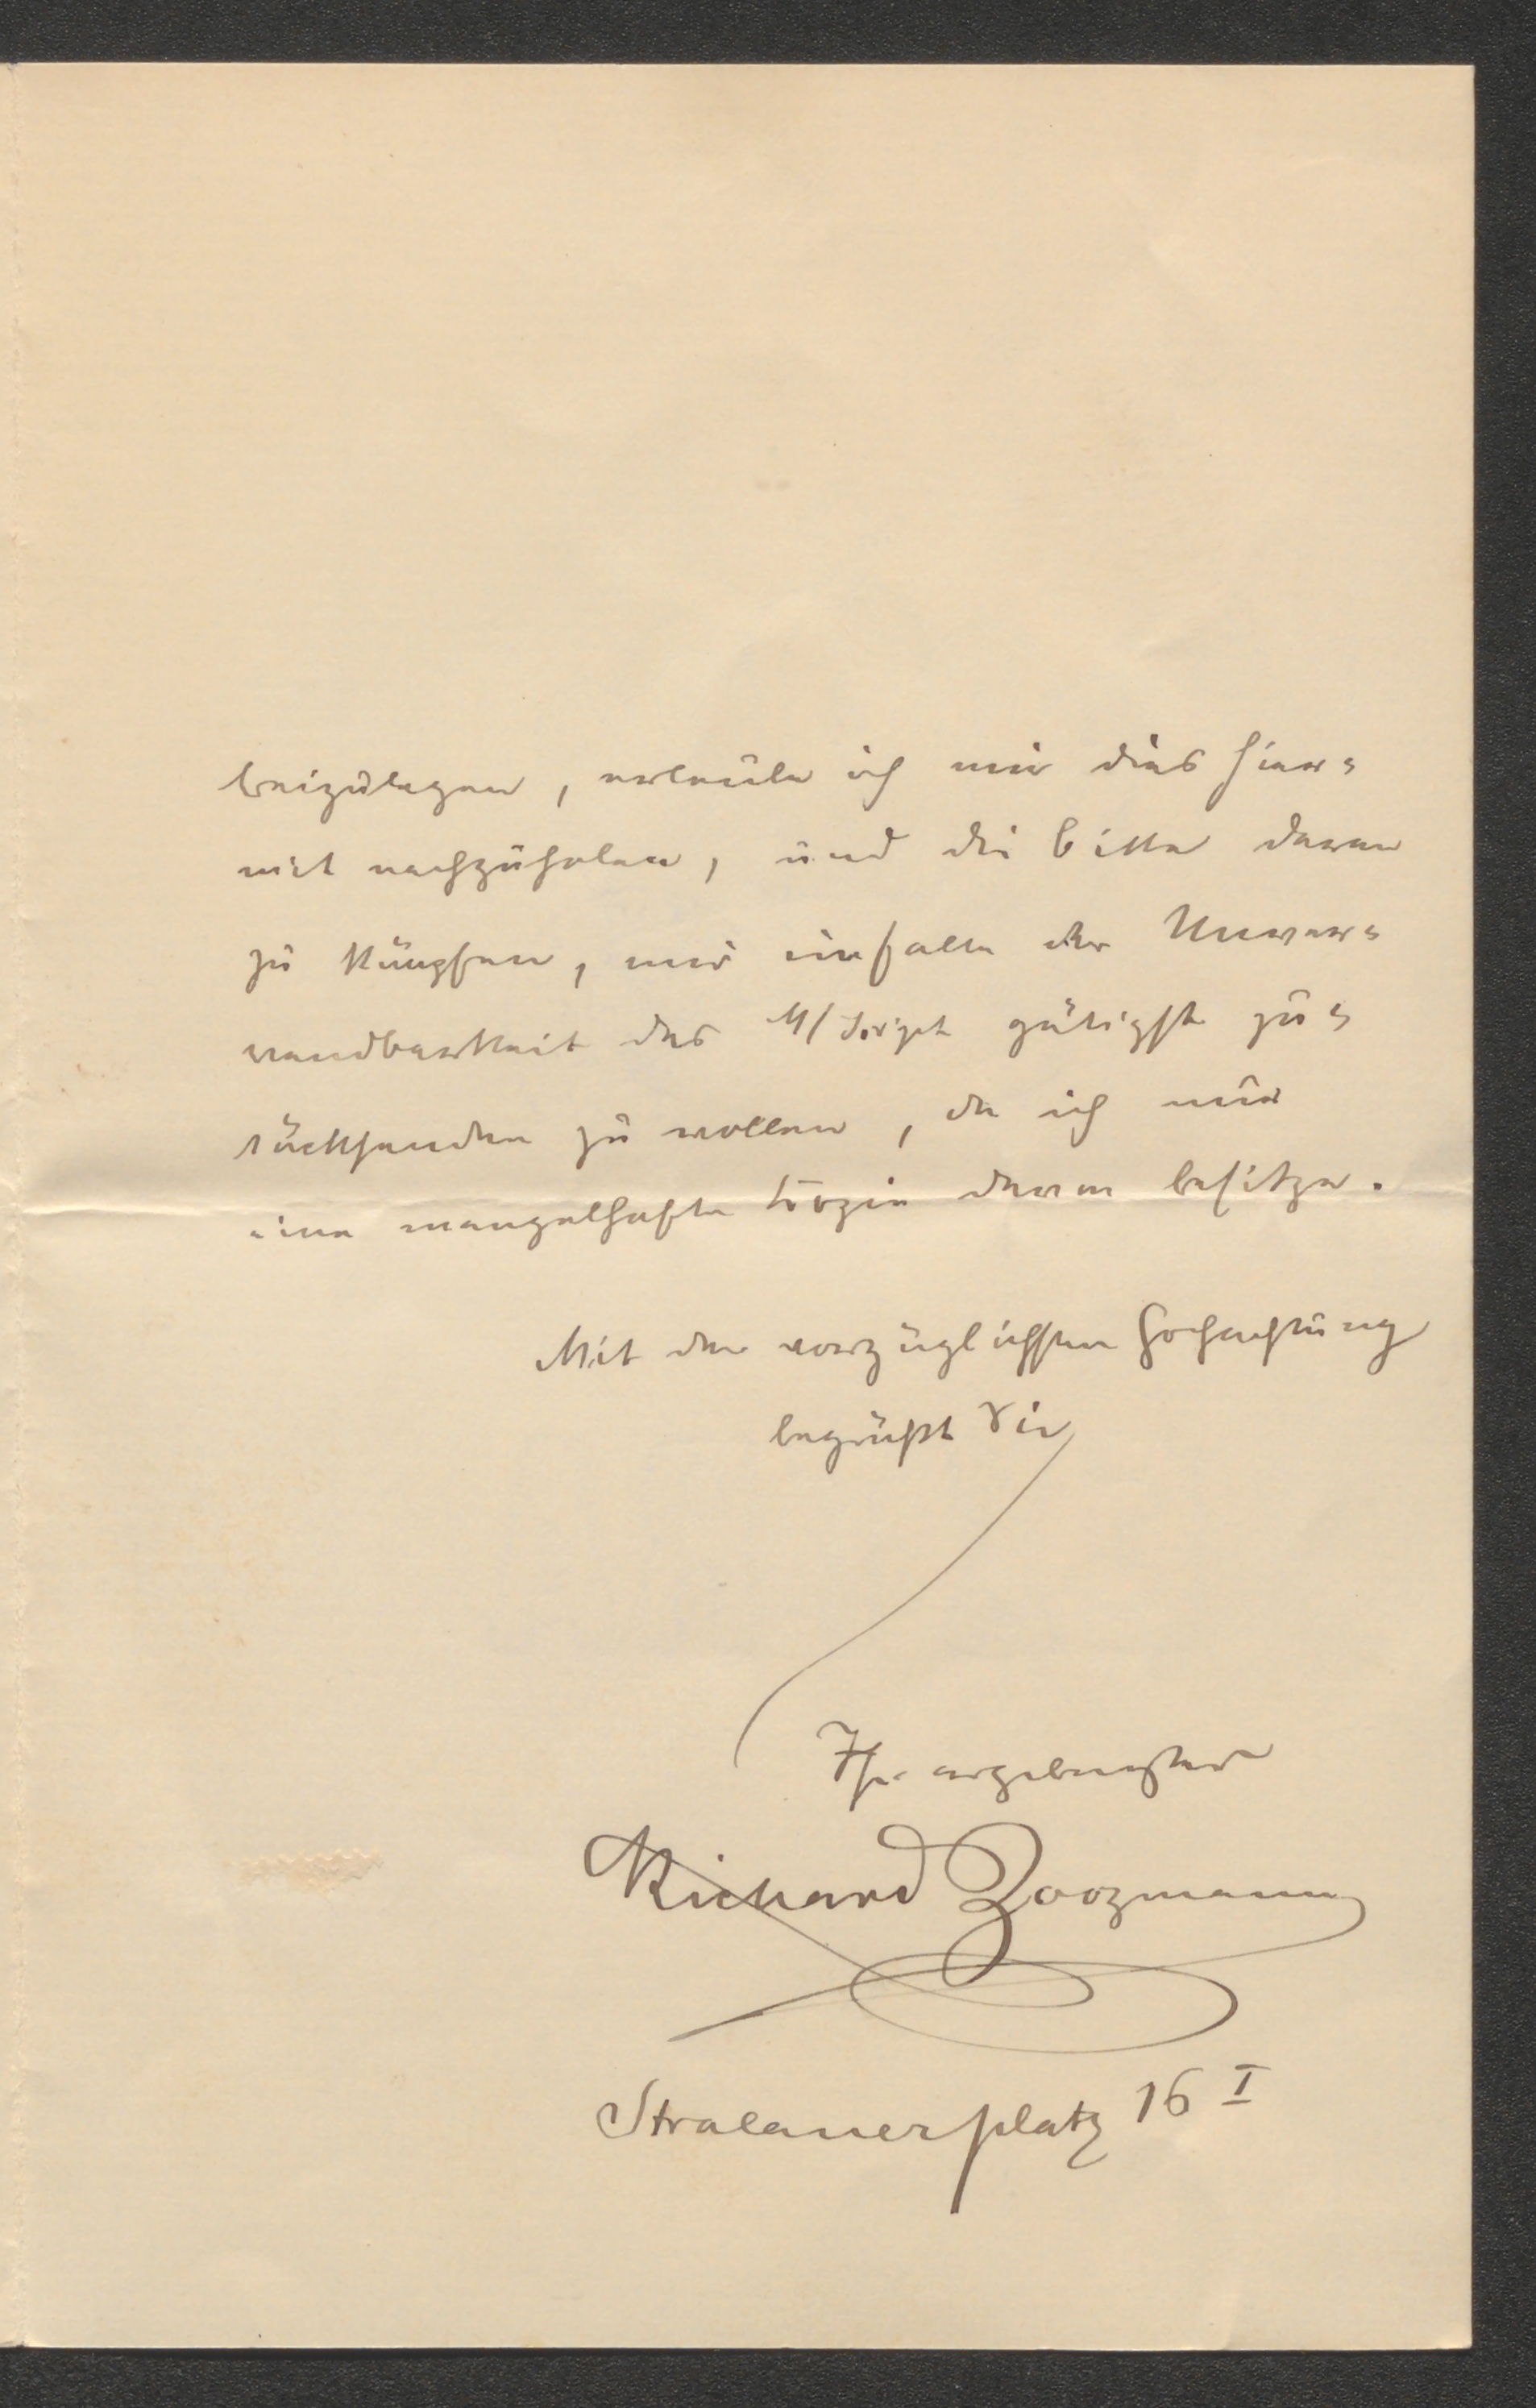 beizulegen, erlaube ich mir dies hier=
mit nachzuholen, und die Bitte daran
zu knüpfen, mir im falle der Unver=
wendbarkeit das M/script gütigst zu=
rücksenden zu wollen, da ich nur
eine mangelhafte Copie davon besitze.
Mit der vorzüglichsten Hochachtung
begrüßt Sie
Ihr ergebenster
Richard Zoozmann
Stralauerplatz 16 I